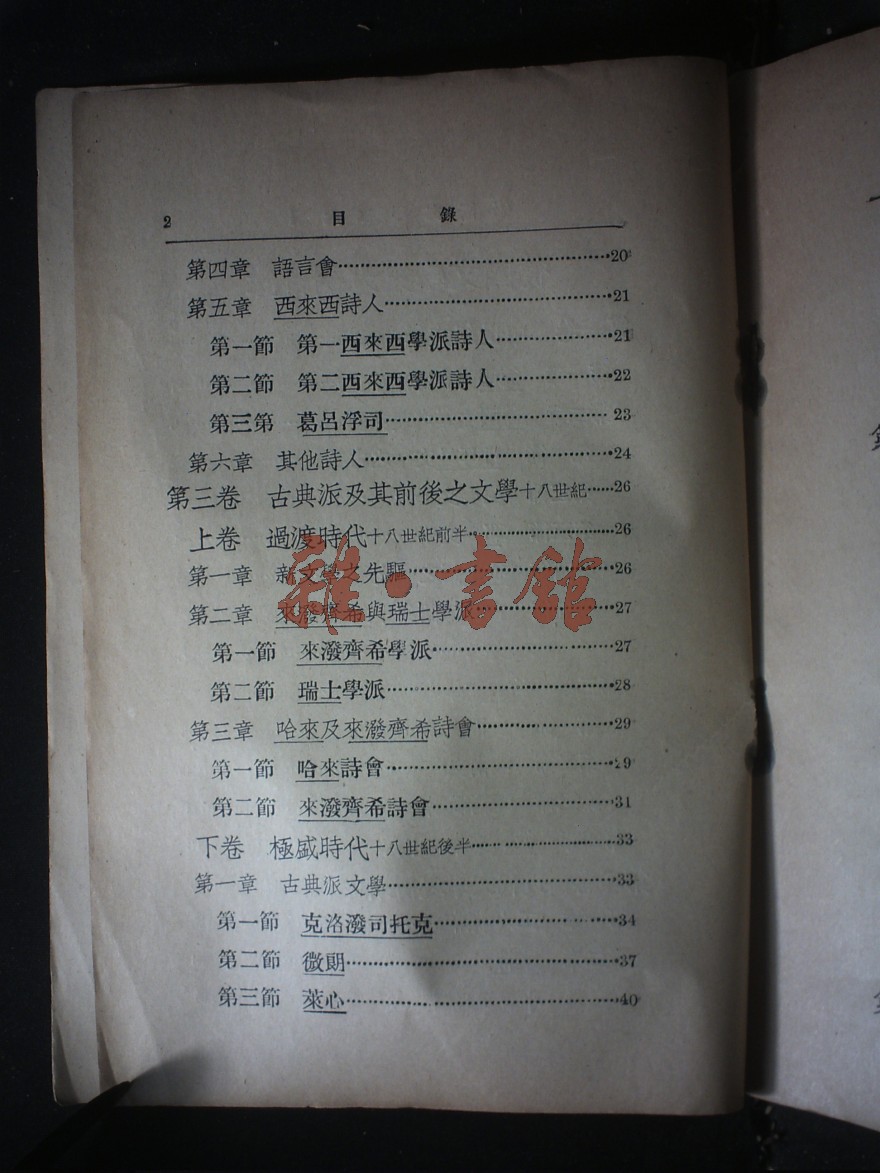 2 目錄
第四章 語言會⋯⋯20
第五章 西來西詩人⋯⋯21
第一節 第一西來西學派詩人⋯⋯21
第二節 第二西來西學派詩人⋯⋯22
第三第 葛呂浮司⋯⋯23
第六章 其他詩人⋯⋯24
第三卷 古典派及其前後之文學十八世紀⋯⋯26
上卷 過渡時代十八世紀前半⋯⋯26
第一章 新文學之先驅⋯⋯26
第二章 來潑齊希與瑞士學派⋯⋯27
第一節 來潑齊希學派⋯⋯27
第二節 瑞士學派⋯⋯28
第三章 哈來及來潑齊希詩會⋯⋯29
第一節 哈來詩會⋯⋯29
第二節 來潑齊希詩會⋯⋯31
下卷 極盛時代十八世紀後半⋯⋯33
第一章 古典派文學⋯⋯33
第一節 克洛潑司托克⋯⋯34
第二節 微朗⋯⋯37
第三節 萊心⋯⋯40
雜·書館